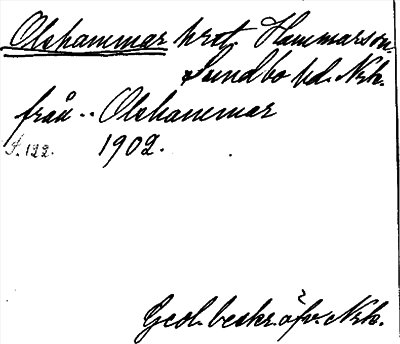 Olshammar hrg, Hammarson.
Sundbo hd. Nrk.
från .. Olshammar
S. 122. 1902.
Geol. beskr. öfv. Nrk.